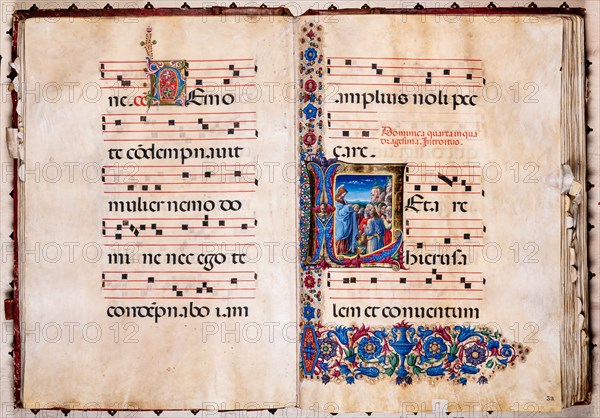 ne. ce Nemo
te cōdempnauit
mulier nemo do
mine nec ego te
condēpnabo iam
amplius noli pec
care.
Dominica quarta in qua
dragesima. Introitus.
Letare
hierusa
lem et conuentum